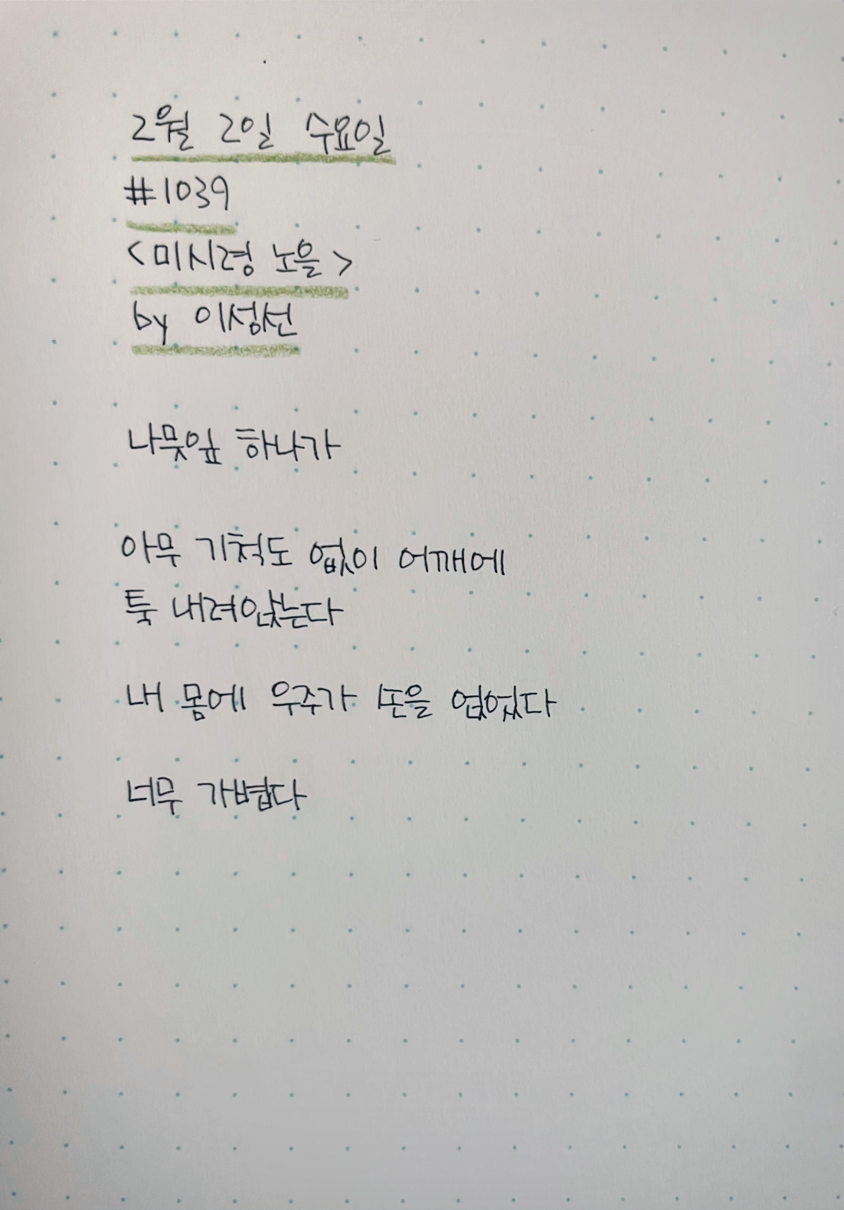 2월 2일 수요일
#1039
<미시령 노을>
by 이성선
나뭇잎 하나가
아무 기척도 없이 어깨에
툭 내려앉는다
내 몸에 우주가 손을 얹었다
너무 가볍다